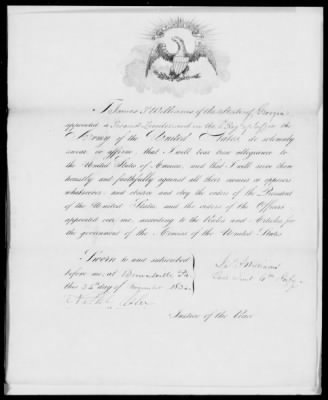 I James W Williams of the State of Georgia
appointed a Second Lieutenant in the Regt of Inf in the
Army of the United States, do solemnly
swear or affirm, that I will bear true allegiance to
the United States of America, and that I will serve them
honestly and faithfully against all their enemies or opposers
whatsoever; and observe and obey the orders of the President
of the United States, and the orders of the Officers
appointed over me, according to the Rules and Articles for
the government of the Armies of the United States.
Sworn to and subscribed
before me, at
this 26 day of November 18
Williams
Lieut 4th Infy
Justice of the Peace